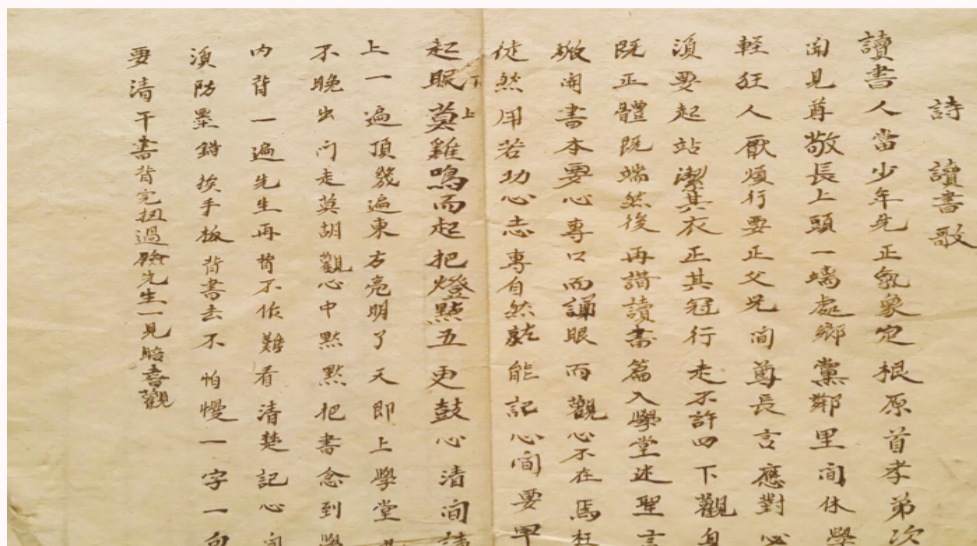 詩 讀書歌
讀書人當少年先正氣象定根原首孝弟次
聞見尊敬長上頭一端處鄉黨鄰里間休學
輕狂人厭煩行要正父兄間尊長言應對必
須要起站潔其衣正其冠行走不許四下觀身
既正體既端然後再講讀書篇入學堂述聖言
敬開書本要心專口而誦眼而觀心不在焉枉
徒然用若功心志專有然就能記心間要早
起眠莫下上雞鳴而起把燈點五更鼓心清間讀
上一遍頂幾遍東方亮明了天即上學堂
不晚出门走莫胡觀心中點默把書念到學
内背一遍先生再背不作難看清楚記心间
須防墨錯挨手板背書去不怕慢一字一句
要清干書背完扭過臉先生一見臉喜觀